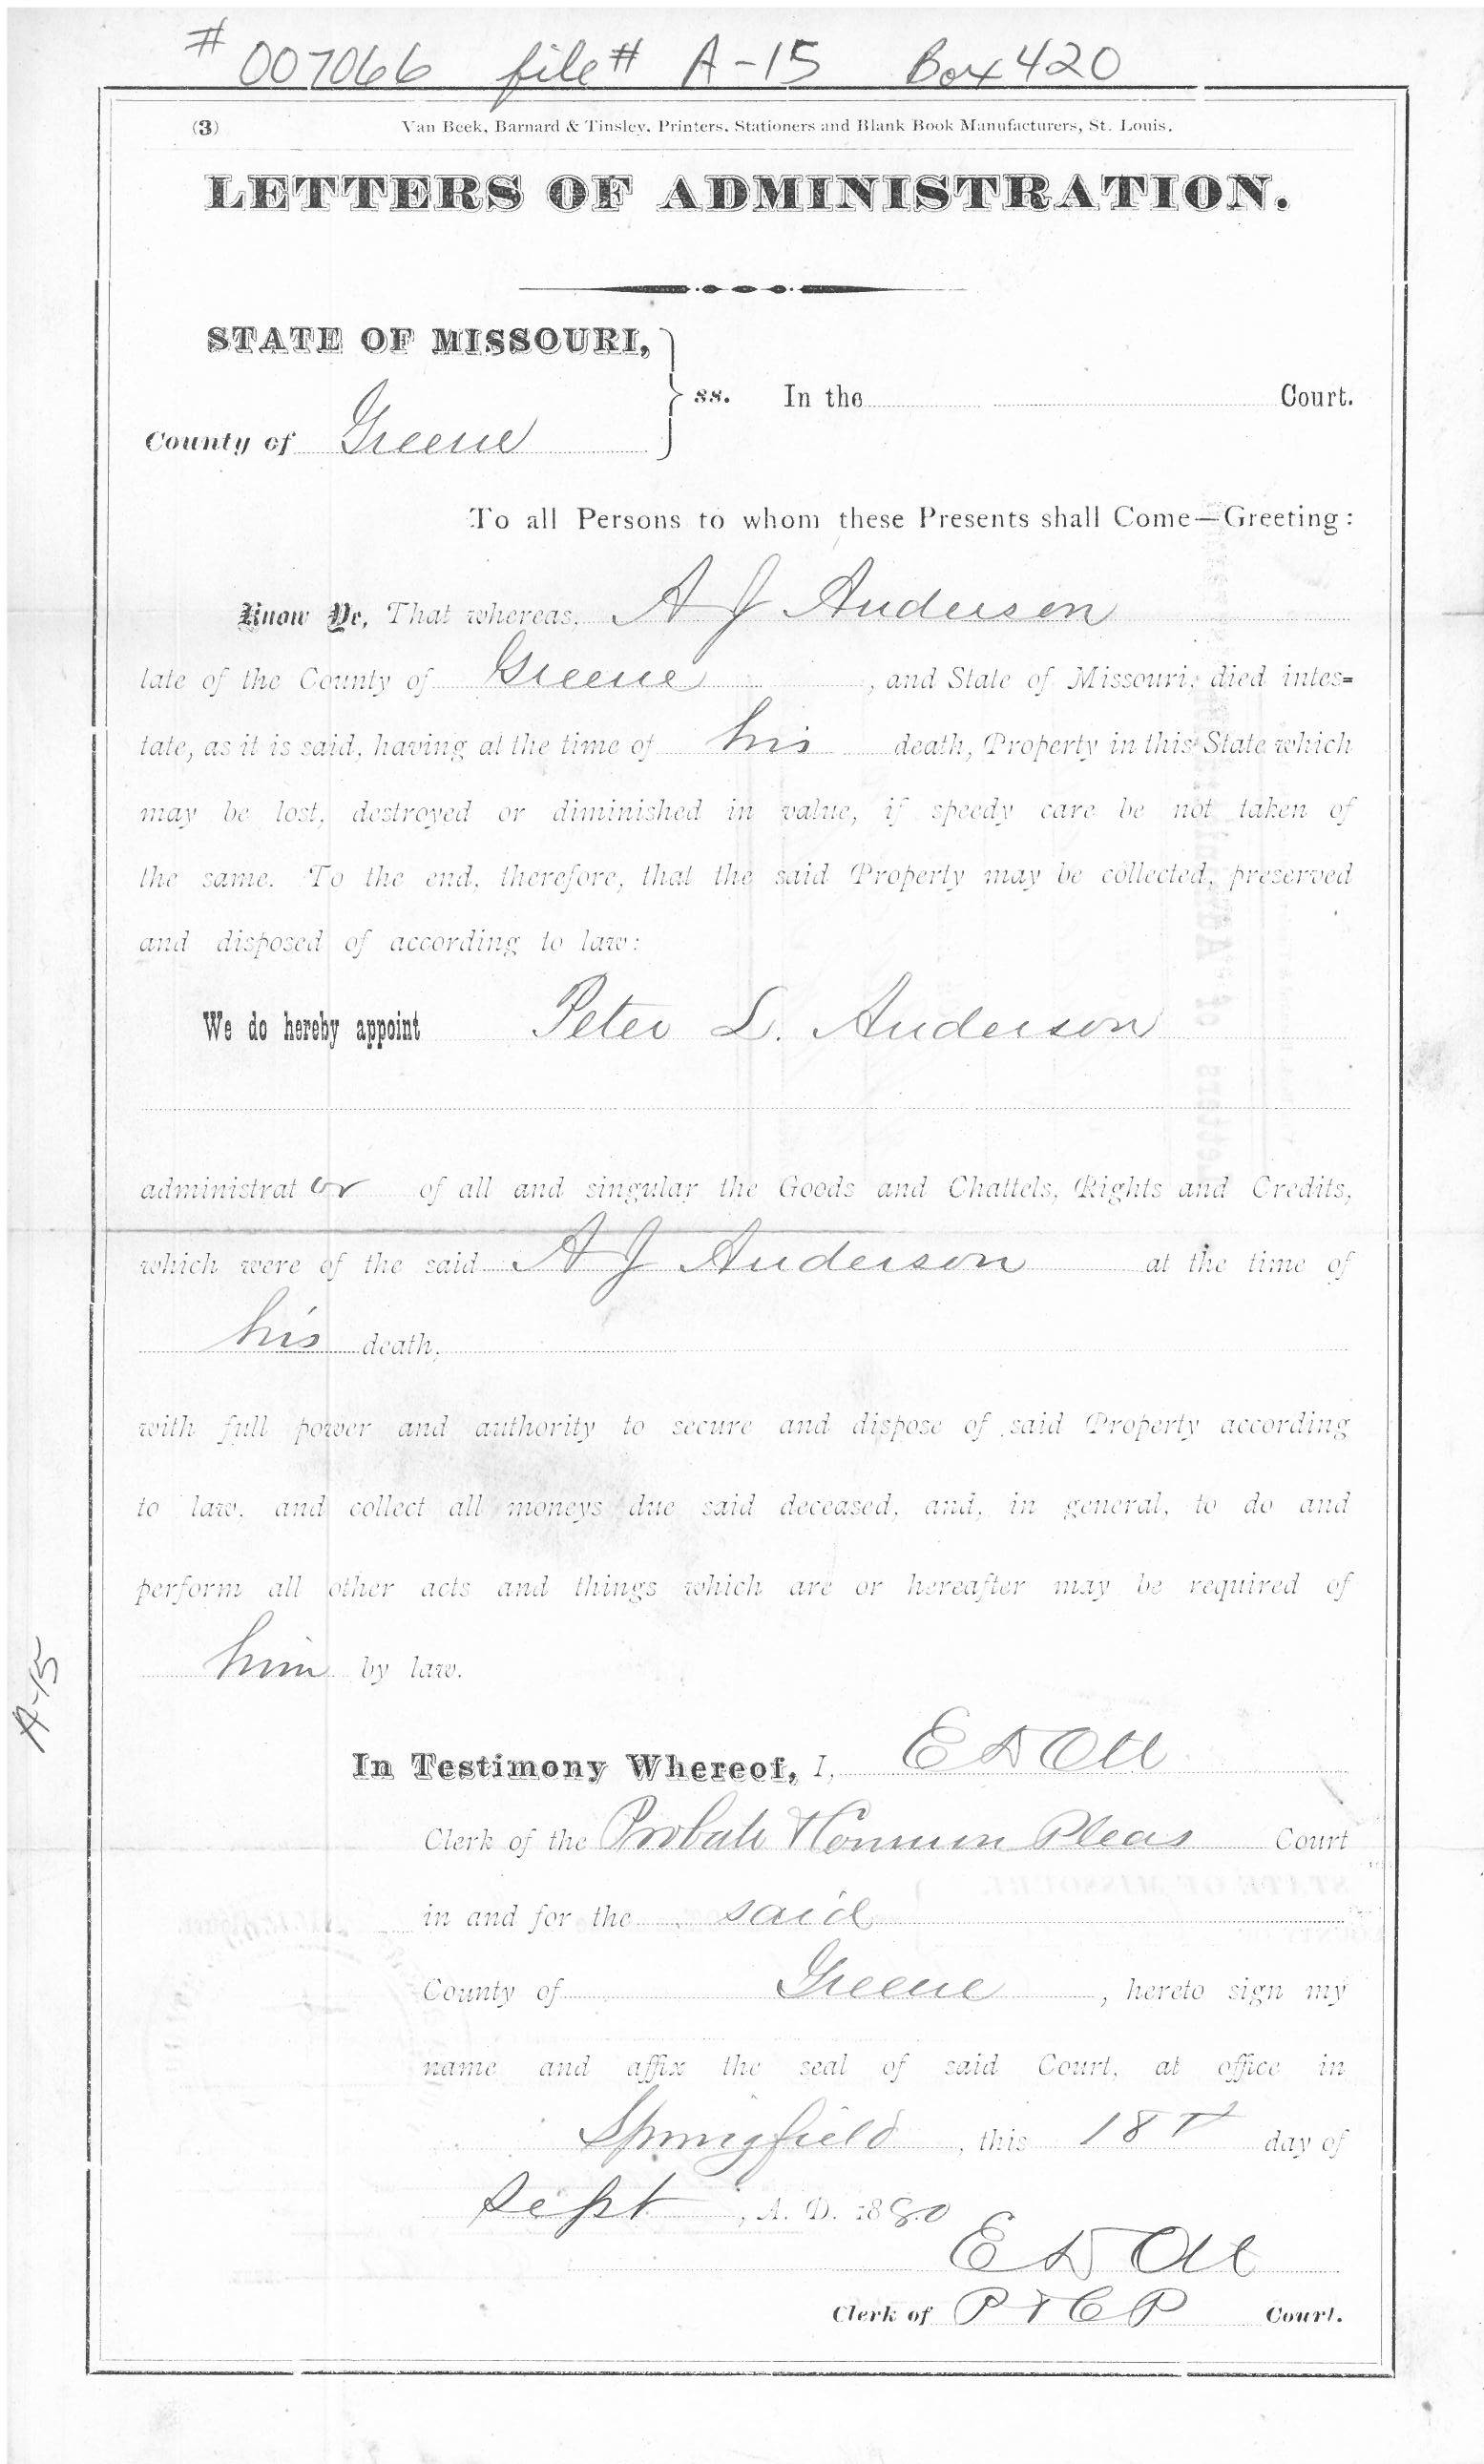 # 007066 file # A-15 Box 420
(3) Van Beek, Barnard & Tinsley, Printers, Stationers and Blank Book Manufacturers, St. Louis.
LETTERS OF ADMINISTRATION.
STATE OF MISSOURI,
County of Greene
ss. In the Court.
To all Persons to whom these Presents shall Come—Greeting:
Know Ye, That whereas, A J Anderson
late of the County of Greene, and State of Missouri, died intes-
tate, as it is said, having at the time of his death, Property in this State which
may be lost, destroyed or diminished in value, if speedy care be not taken of
the same. To the end, therefore, that the said Property may be collected, preserved
and disposed of according to law:
We do hereby appoint Peter L. Anderson
administrator of all and singular the Goods and Chattels, Rights and Credits,
which were of the said A J Anderson at the time of
his death,
with full power and authority to secure and dispose of said Property according
to law, and collect all moneys due said deceased, and, in general, to do and
perform all other acts and things which are or hereafter may be required of
him by law.
A-15
In Testimony Whereof, I, E D Ott
Clerk of the Probate & Common Pleas Court
in and for the said
County of Greene, hereto sign my
name and affix the seal of said Court, at office in
Springfield, this 18th day of
Sept, A. D. 1880
E D Ott
Clerk of P & C P Court.